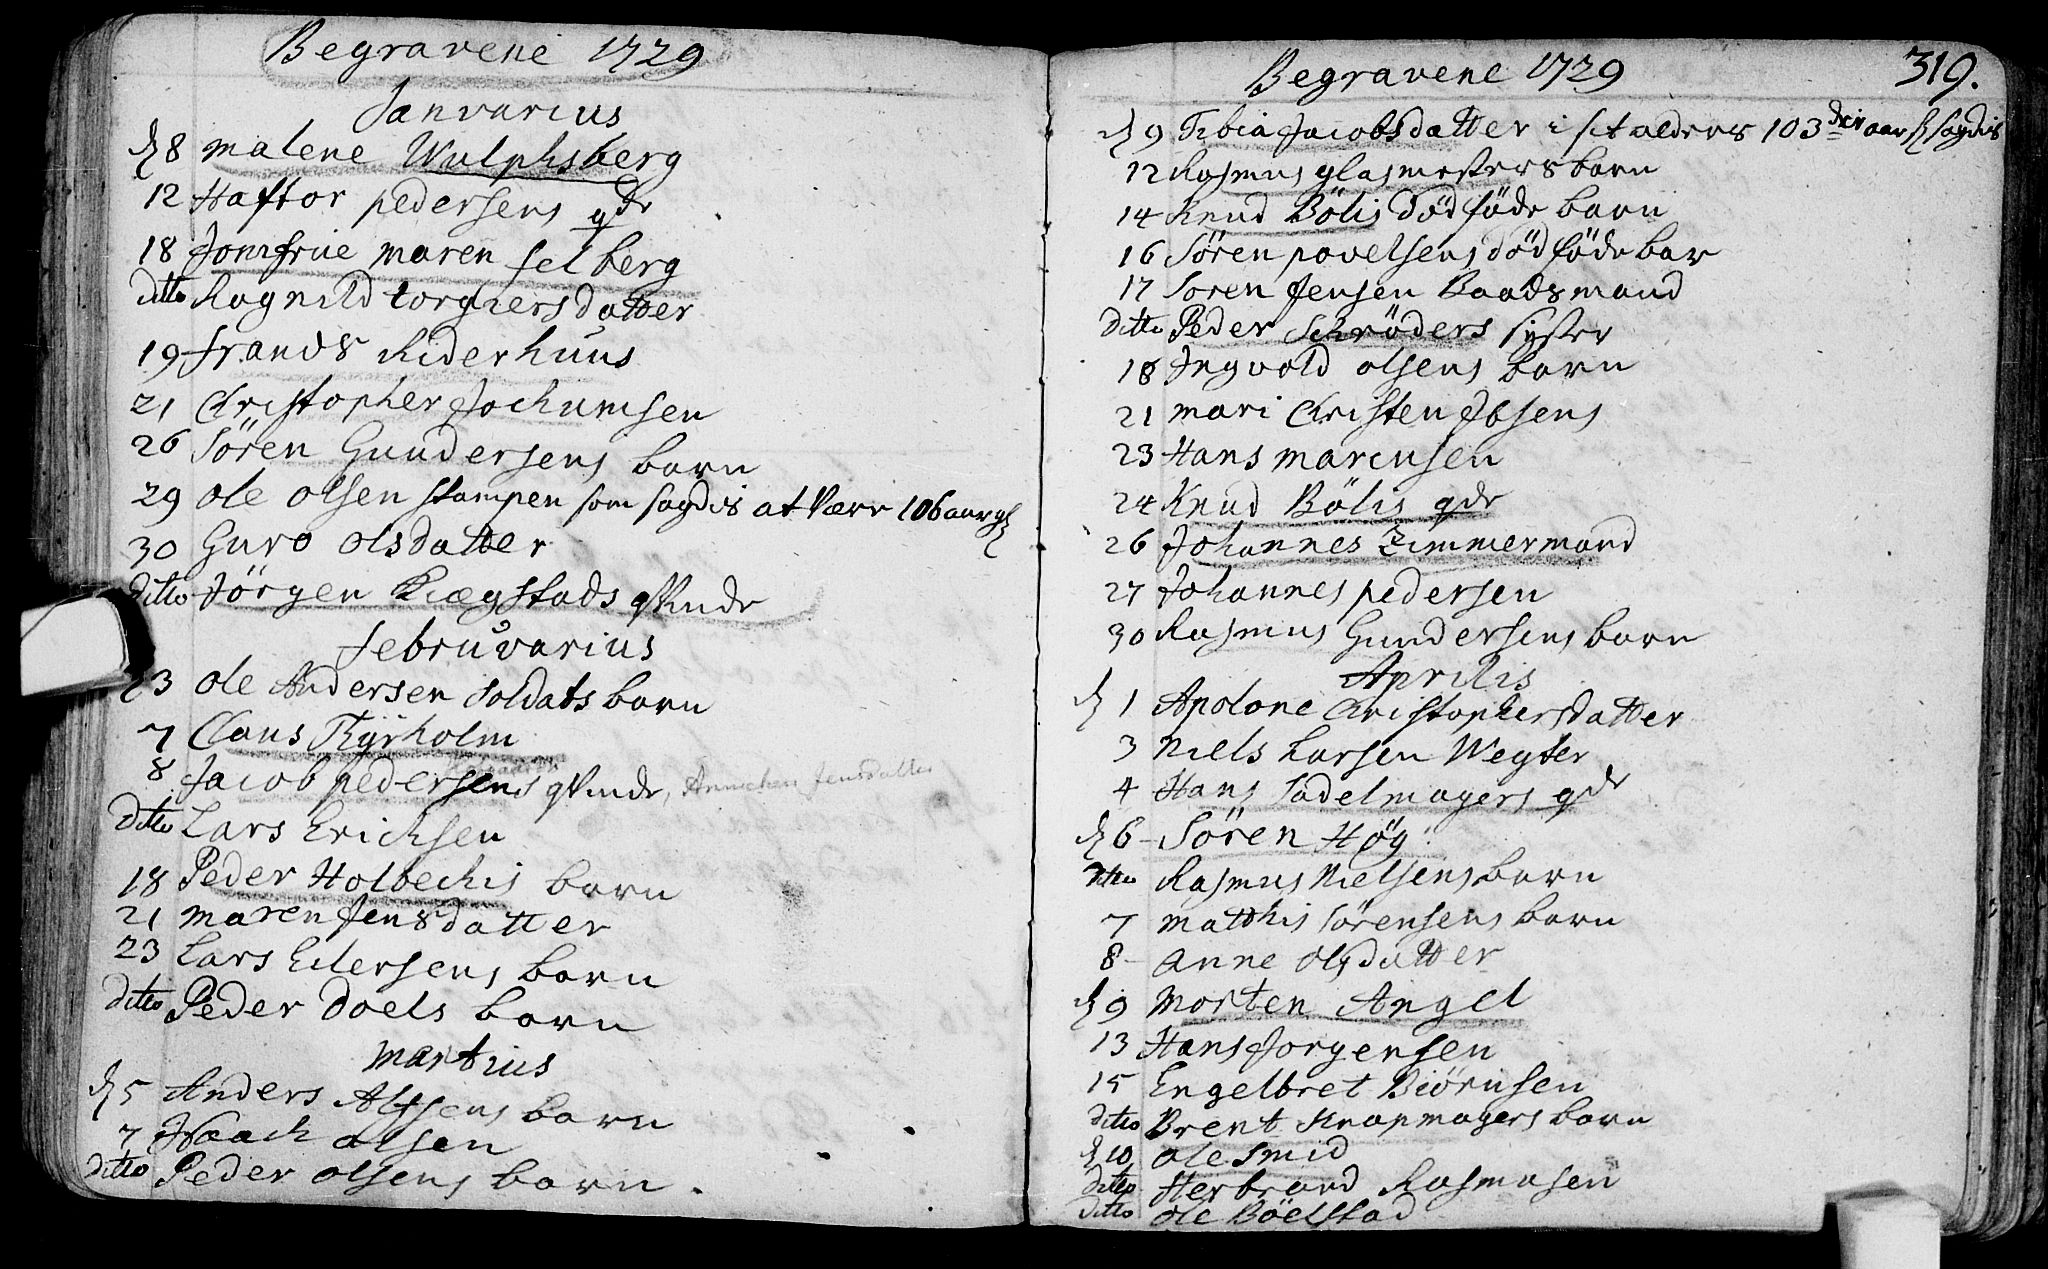 Begravene 1729
Janvarius
d 8 Malene Wulphsberg
12 Haftor pedersens qde
18 Jomfrue maren Selberg
ditto Ragnild torgiersdatter
19 frands Riderhuus
21 Christopher Jochumsen
26 Sören Gundersens barn
29 Ole Olsen stampen som sagdis at være 106 aar gl
30 Guro Olsdatter
ditto Jörgen Kiægstads qvinde
Februvarius
d 3 Ole Andersen Soldats barn
7 Claus Thyrholm
8 Jacob pedersens qvinde, Annichen Jensdatter
ditto Lars Ericksen
18 Peder Holbechis barn
21 maren Jensdatter
23 Lars Eilersens barn
ditto Peder Doels barn
Martius
d 5 Anders Alfsens barn
7 Isaach olsen
ditto Peder olsens barn
Begravene 1729 319.
d 9 Tibia Jacobsdatter i sit alders 103 die aar sagdis
12 Rasmus glasmesters barn
14 Knud Bölis död föde barn
16 Sören povelsens död föde bar
17 Soren Jensen Baadsmand
ditto Peder Schröders syster
18 Ingvold olsens barn
21 mari Christen Ibsens
23 Hans marensen
24 Knud Bölis qde
26 Johannes Zimmermand
27 Johannes pedersen
30 Rasmus Gundersens barn
Aprilis
d 1 Apolone Christophersdatter
3 Niels Larsen Wegter
4 Hans Sadelmagers qde
d 6 Sören Höy
ditto Rasmus Nielsens barn
7 Matthis Sörensens barn
8 Anne Olsdatter
d 9 Morten Angel
13 Hans Jorgensen
15 Engelbret Biörnsen
ditto Brent Knapmagers barn
d 10 Ole Smid
ditto Herbrand Rasmusen
ditto Ole Böelstad